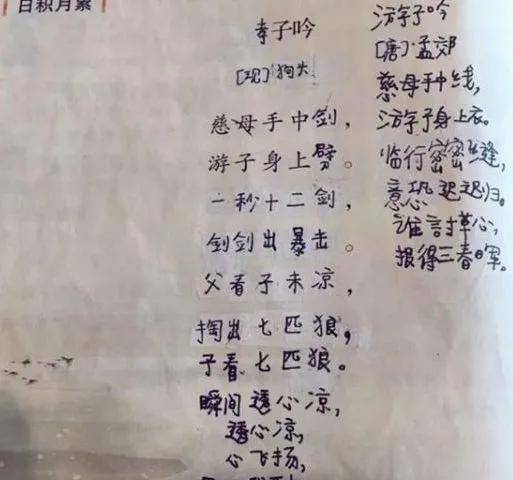 日积月累
孝子吟
[现]狗大
慈母手中剑，
游子身上劈。
一秒十二剑，
剑剑出暴击。
父看子未凉，
掏出七匹狼，
子看七匹狼。
瞬间透心凉，
透心凉，
心飞扬，
游子吟
[唐]孟郊
慈母手中线，
游子身上衣。
临行密密缝，
意恐迟迟归。
谁討草心，
报得三春晖。